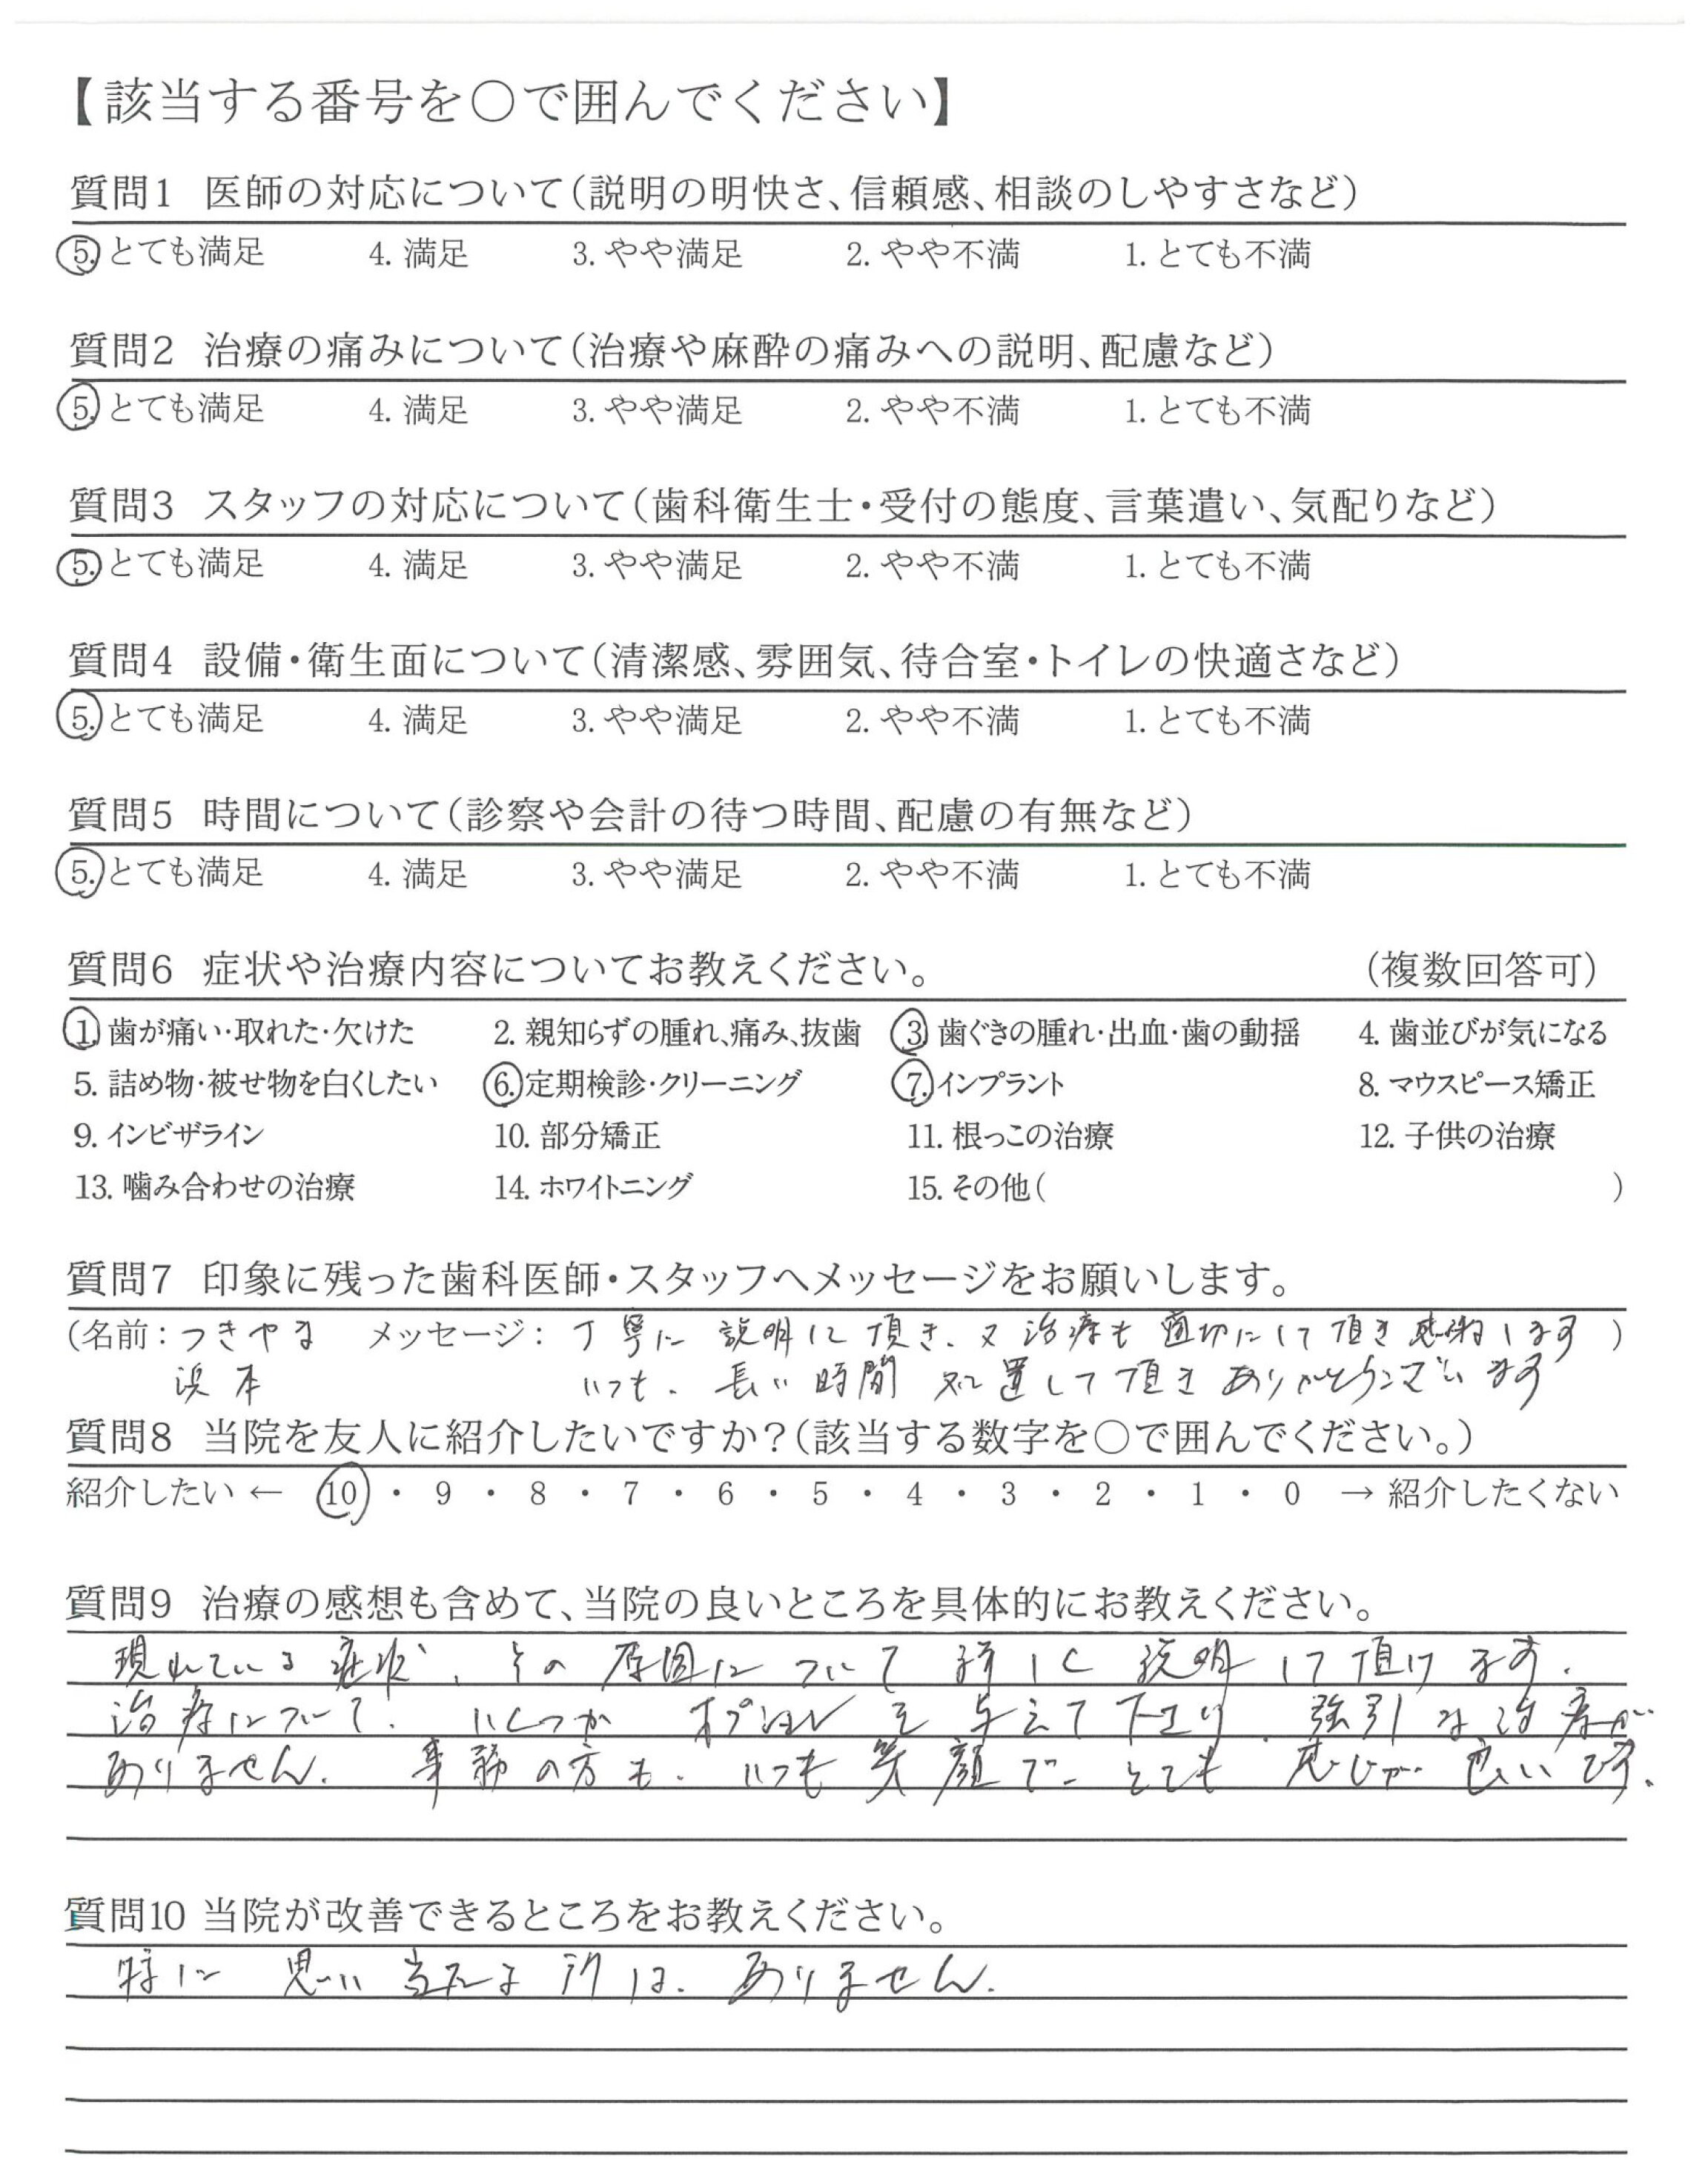 【該当する番号を〇で囲んでください】
質問1 医師の対応について(説明の明快さ、信頼感、相談のしやすさなど)
5. とても満足 4. 満足 3. やや満足 2. やや不満 1. とても不満
質問2 治療の痛みについて(治療や麻酔の痛みへの説明、配慮など)
5. とても満足 4. 満足 3. やや満足 2. やや不満 1. とても不満
質問3 スタッフの対応について(歯科衛生士・受付の態度、言葉遣い、気配りなど)
5. とても満足 4. 満足 3. やや満足 2. やや不満 1. とても不満
質問4 設備・衛生面について(清潔感、雰囲気、待合室・トイレの快適さなど)
5. とても満足 4. 満足 3. やや満足 2. やや不満 1. とても不満
質問5 時間について(診察や会計の待つ時間、配慮の有無など)
5. とても満足 4. 満足 3. やや満足 2. やや不満 1. とても不満
質問6 症状や治療内容についてお教えください。 (複数回答可)
1. 歯が痛い・取れた・欠けた 2. 親知らずの腫れ、痛み、抜歯 3. 歯ぐきの腫れ・出血・歯の動揺 4. 歯並びが気になる
5. 詰め物・被せ物を白くしたい 6. 定期検診・クリーニング 7. インプラント 8. マウスピース矯正
9. インビザライン 10. 部分矯正 11. 根っこの治療 12. 子供の治療
13. 噛み合わせの治療 14. ホワイトニング 15. その他( )
質問7 印象に残った歯科医師・スタッフへメッセージをお願いします。
(名前:つきやま メッセージ:丁寧に 説明して頂き、又治療も適切にして頂き感謝します)
浜本 いつも、長い時間 処置して頂きありがとうございます
質問8 当院を友人に紹介したいですか?(該当する数字を〇で囲んでください。)
紹介したい ← 10 ・ 9 ・ 8 ・ 7 ・ 6 ・ 5 ・ 4 ・ 3 ・ 2 ・ 1 ・ 0 → 紹介したくない
質問9 治療の感想も含めて、当院の良いところを具体的にお教えください。
現れている 症状、その 原因について 詳しく 説明して頂けます。
治療について、いくつか オプションを与えて下さり、強引な治療が
ありません。事務の方も、いつも笑顔で とても 感じが 良いです。
質問10 当院が改善できるところをお教えください。
特に 思い 当たる 所は、ありません。